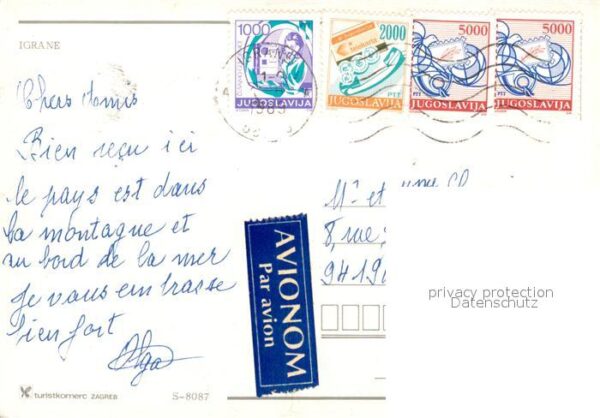 IGRANE
Chers Amis
Bien reçu ici
le pays est dans
la montagne et
au bord de la mer
je vous embrasse
bien fort
Olga
turistkomerc ZAGREB
S-8087
1000
JUGOSLAVIJA
2000
PTT
JUGOSLAVIJA
5000
PTT
JUGOSLAVIJA
5000
PTT
JUGOSLAVIJA
1989
AVIONOM
Par avion
Mr et
8, rue
9419
privacy protection
Datenschutz